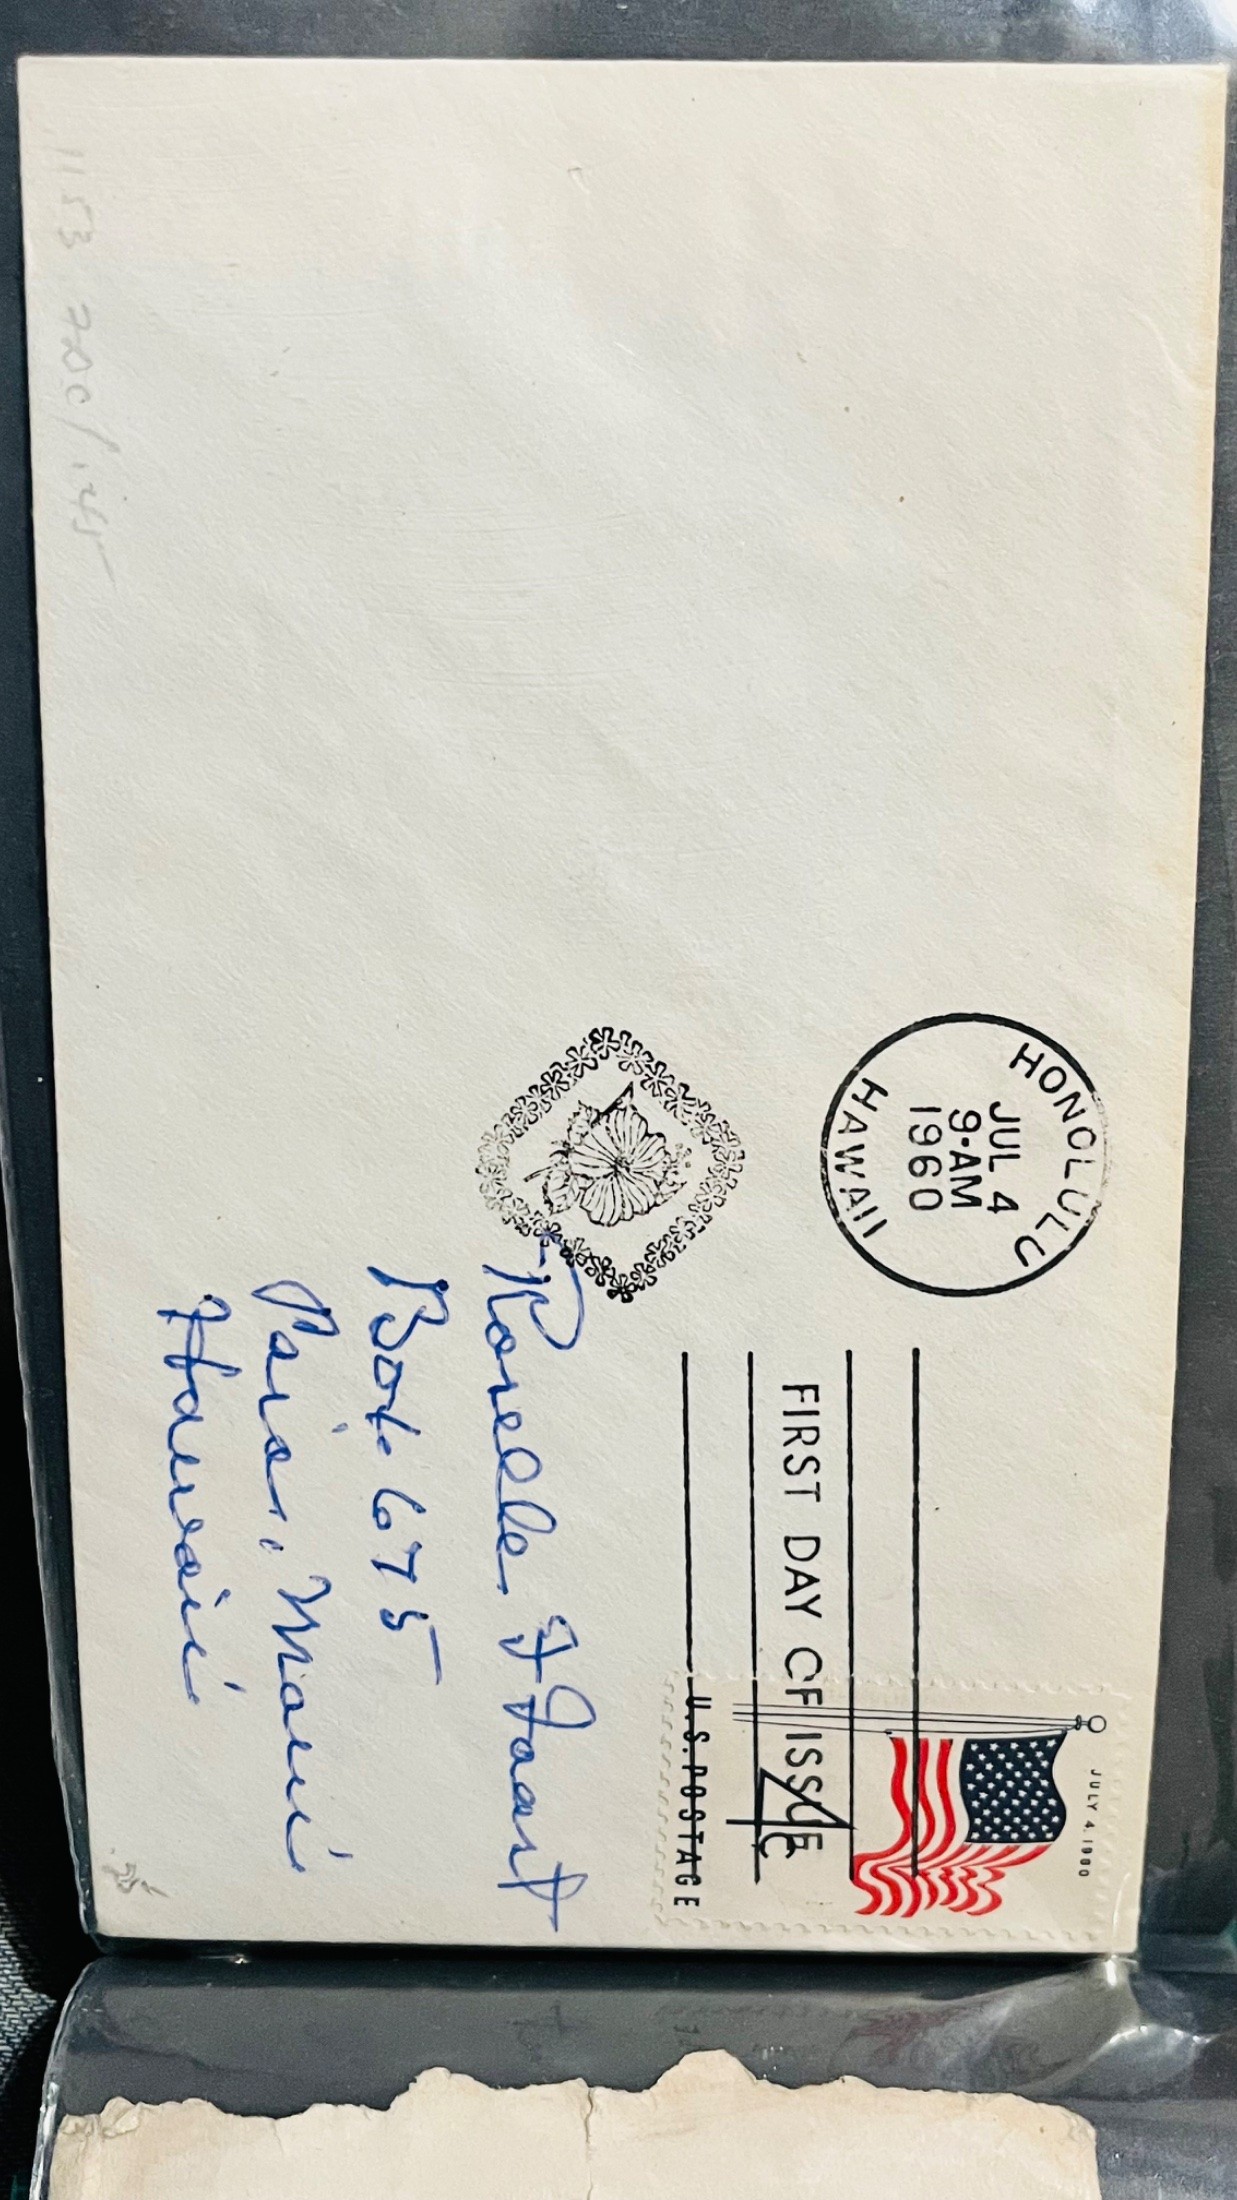 HONOLULU
JUL 4
9-AM
1960
HAWAII
FIRST DAY OF ISSUE
JULY 4, 1960
4c
U.S. POSTAGE
Box 675
Paia, Maui
Hawaii
1153